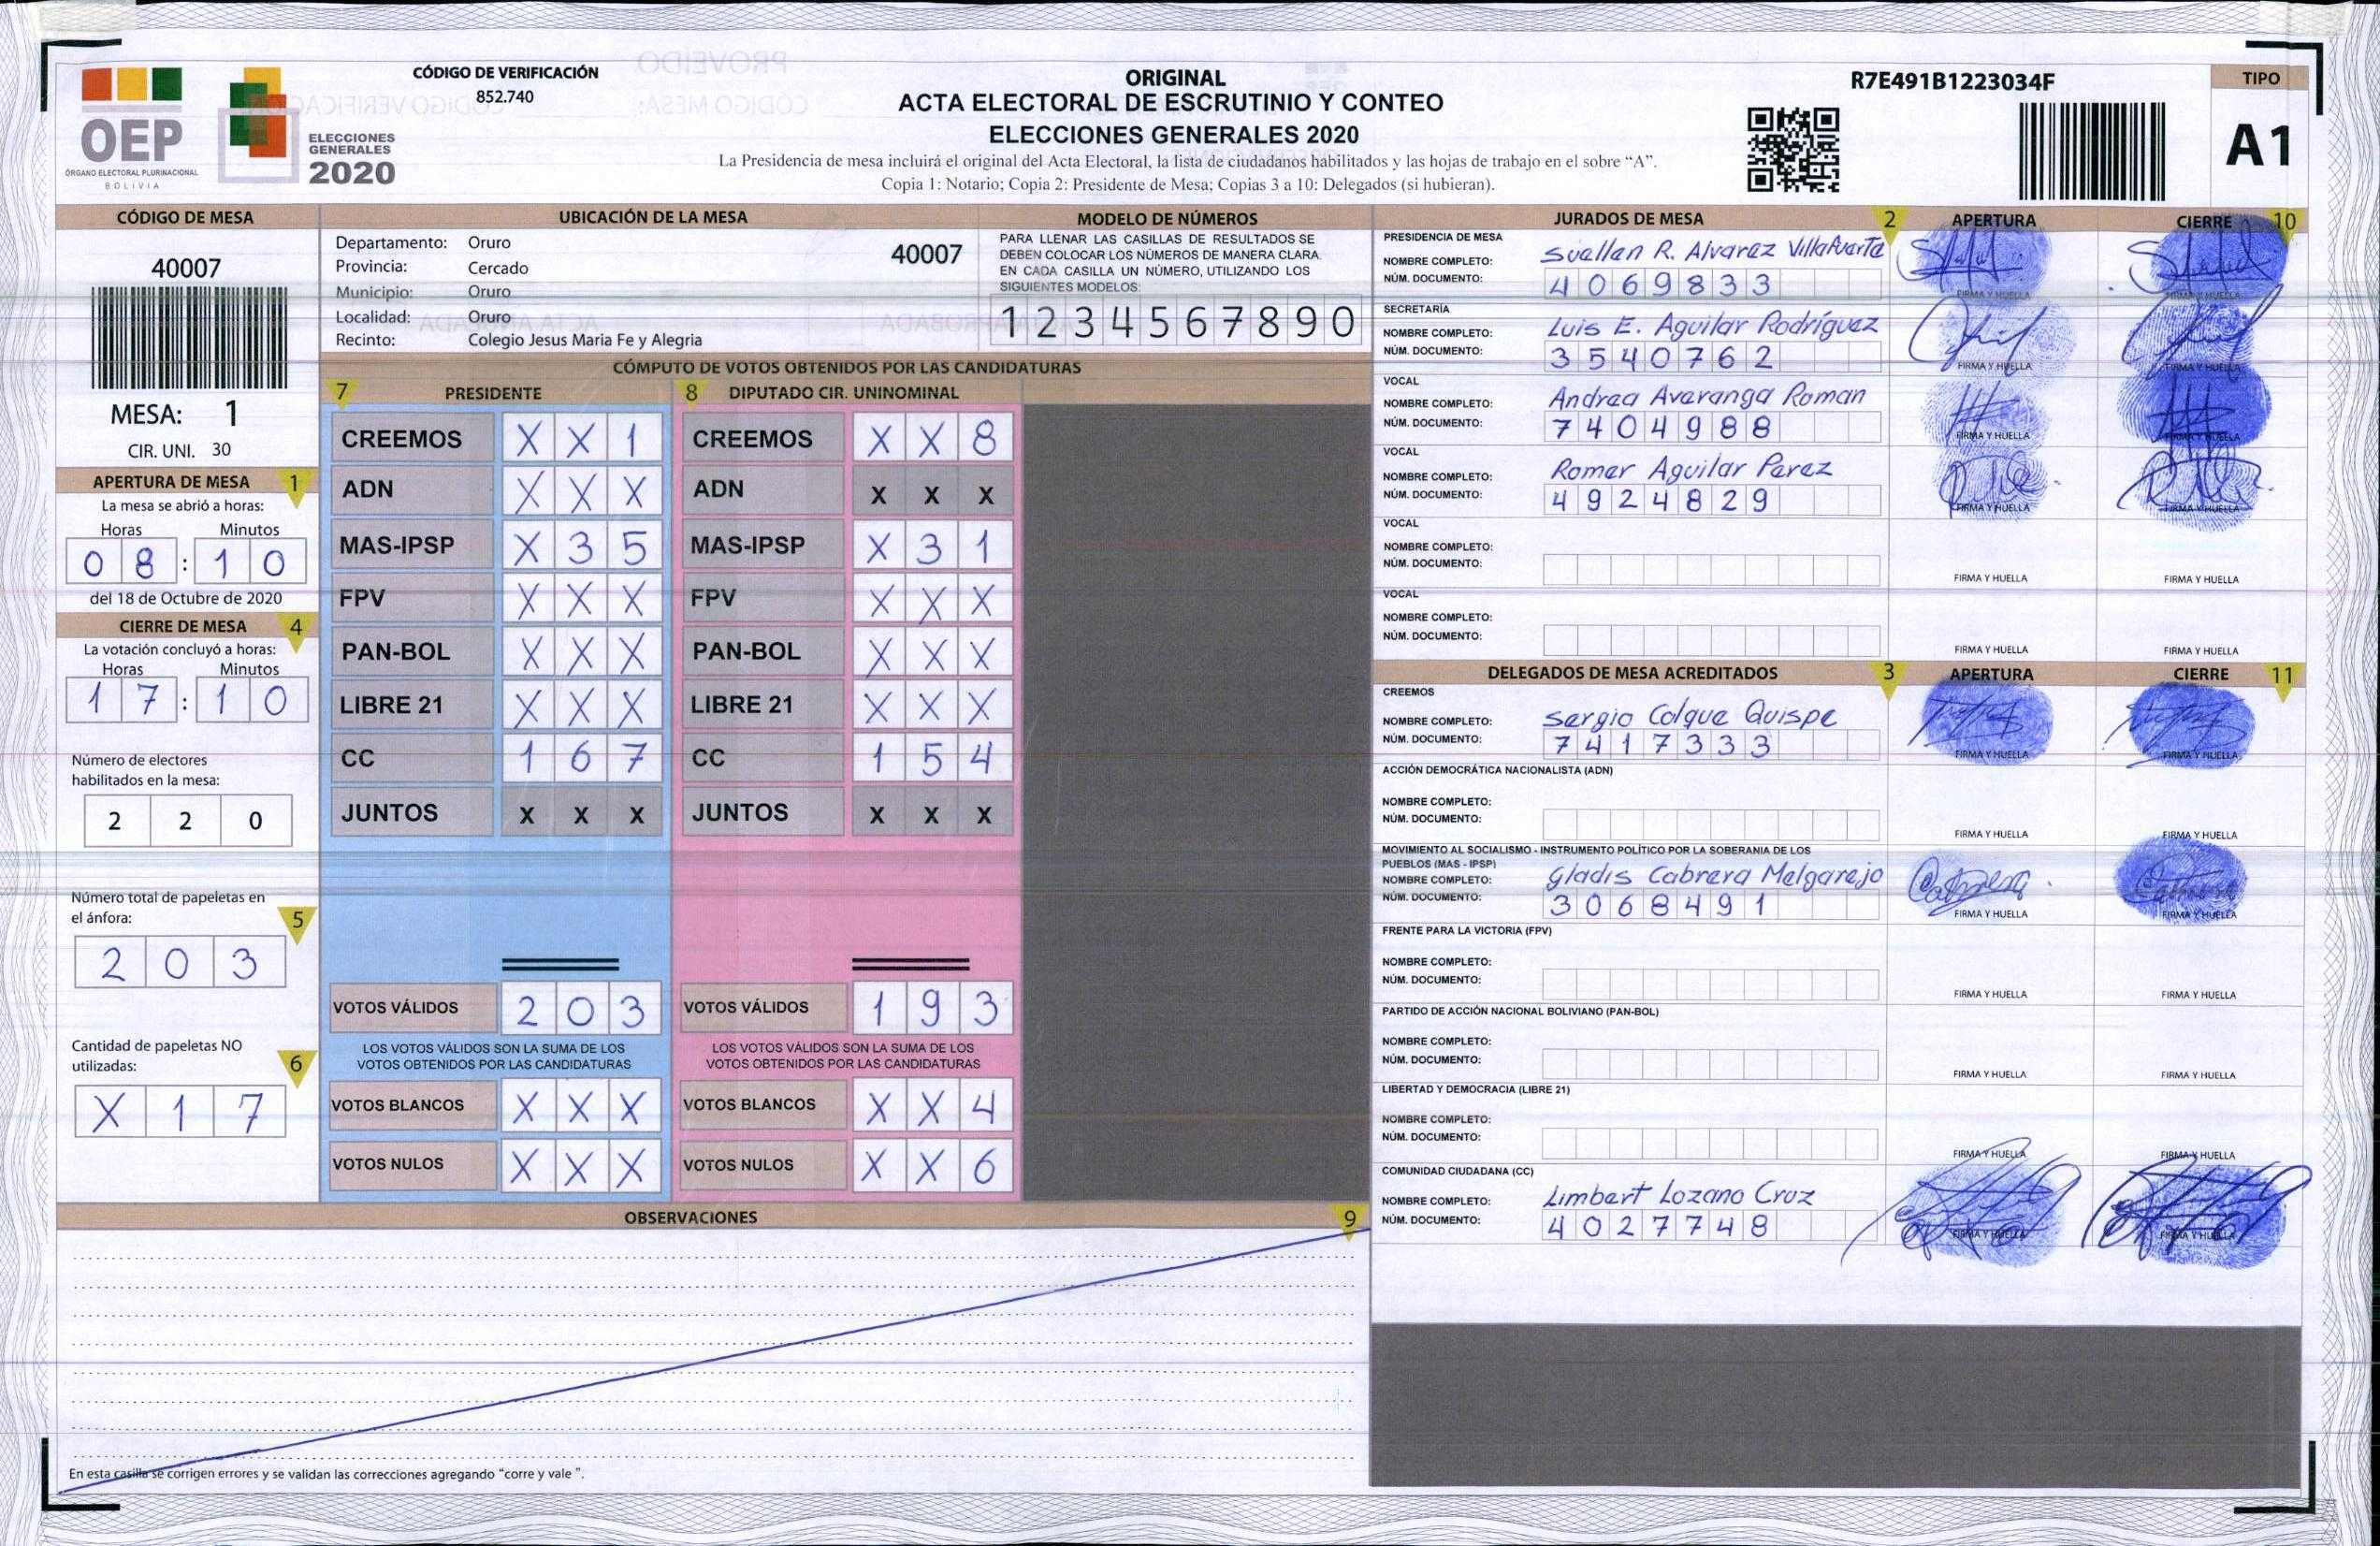 OEP
ÓRGANO ELECTORAL PLURINACIONAL
BOLIVIA
ELECCIONES
GENERALES
2020
CÓDIGO DE VERIFICACIÓN
852.740
ORIGINAL
ACTA ELECTORAL DE ESCRUTINIO Y CONTEO
ELECCIONES GENERALES 2020
La Presidencia de mesa incluirá el original del Acta Electoral, la lista de ciudadanos habilitados y las hojas de trabajo en el sobre “A”.
Copia 1: Notario; Copia 2: Presidente de Mesa; Copias 3 a 10: Delegados (si hubieran).
R7E491B1223034F
TIPO
A1
CÓDIGO DE MESA
40007
MESA: 1
CIR. UNI. 30
APERTURA DE MESA 1
La mesa se abrió a horas:
Horas Minutos
0 8 : 1 0
del 18 de Octubre de 2020
CIERRE DE MESA 4
La votación concluyó a horas:
Horas Minutos
1 7 : 1 0
Número de electores
habilitados en la mesa:
2 2 0
Número total de papeletas en
el ánfora: 5
2 0 3
Cantidad de papeletas NO
utilizadas: 6
X 1 7
UBICACIÓN DE LA MESA
Departamento: Oruro
40007
Provincia: Cercado
Municipio: Oruro
Localidad: Oruro
Recinto: Colegio Jesus Maria Fe y Alegria
MODELO DE NÚMEROS
PARA LLENAR LAS CASILLAS DE RESULTADOS SE
DEBEN COLOCAR LOS NÚMEROS DE MANERA CLARA.
EN CADA CASILLA UN NÚMERO, UTILIZANDO LOS
SIGUIENTES MODELOS:
1 2 3 4 5 6 7 8 9 0
CÓMPUTO DE VOTOS OBTENIDOS POR LAS CANDIDATURAS
7 PRESIDENTE 8 DIPUTADO CIR. UNINOMINAL
CREEMOS X X 1 CREEMOS X X 8
ADN X X X ADN X X X
MAS-IPSP X 3 5 MAS-IPSP X 3 1
FPV X X X FPV X X X
PAN-BOL X X X PAN-BOL X X X
LIBRE 21 X X X LIBRE 21 X X X
CC 1 6 7 CC 1 5 4
JUNTOS X X X JUNTOS X X X
VOTOS VÁLIDOS 2 0 3 VOTOS VÁLIDOS 1 9 3
LOS VOTOS VÁLIDOS SON LA SUMA DE LOS LOS VOTOS VÁLIDOS SON LA SUMA DE LOS
VOTOS OBTENIDOS POR LAS CANDIDATURAS VOTOS OBTENIDOS POR LAS CANDIDATURAS
VOTOS BLANCOS X X X VOTOS BLANCOS X X 4
VOTOS NULOS X X X VOTOS NULOS X X 6
OBSERVACIONES 9
En esta casilla se corrigen errores y se validan las correcciones agregando “corre y vale ”.
JURADOS DE MESA 2 APERTURA CIERRE 10
PRESIDENCIA DE MESA
NOMBRE COMPLETO: Suellen R. Alvarez Villafuerte
NÚM. DOCUMENTO: 4 0 6 9 8 3 3
FIRMA Y HUELLA FIRMA Y HUELLA
SECRETARÍA
NOMBRE COMPLETO: Luis E. Aguilar Rodríguez
NÚM. DOCUMENTO: 3 5 4 0 7 6 2
FIRMA Y HUELLA FIRMA Y HUELLA
VOCAL
NOMBRE COMPLETO: Andrea Avaranga Roman
NÚM. DOCUMENTO: 7 4 0 4 9 8 8
FIRMA Y HUELLA FIRMA Y HUELLA
VOCAL
NOMBRE COMPLETO: Romer Aguilar Perez
NÚM. DOCUMENTO: 4 9 2 4 8 2 9
FIRMA Y HUELLA FIRMA Y HUELLA
VOCAL
NOMBRE COMPLETO:
NÚM. DOCUMENTO:
FIRMA Y HUELLA FIRMA Y HUELLA
VOCAL
NOMBRE COMPLETO:
NÚM. DOCUMENTO:
FIRMA Y HUELLA FIRMA Y HUELLA
DELEGADOS DE MESA ACREDITADOS 3 APERTURA CIERRE 11
CREEMOS
NOMBRE COMPLETO: Sergio Colque Quispe
NÚM. DOCUMENTO: 7 4 1 7 3 3 3
FIRMA Y HUELLA FIRMA Y HUELLA
ACCIÓN DEMOCRÁTICA NACIONALISTA (ADN)
NOMBRE COMPLETO:
NÚM. DOCUMENTO:
FIRMA Y HUELLA FIRMA Y HUELLA
MOVIMIENTO AL SOCIALISMO - INSTRUMENTO POLÍTICO POR LA SOBERANIA DE LOS
PUEBLOS (MAS - IPSP)
NOMBRE COMPLETO: Gladis Cabrera Melgarejo
NÚM. DOCUMENTO: 3 0 6 8 4 9 1
FIRMA Y HUELLA FIRMA Y HUELLA
FRENTE PARA LA VICTORIA (FPV)
NOMBRE COMPLETO:
NÚM. DOCUMENTO:
FIRMA Y HUELLA FIRMA Y HUELLA
PARTIDO DE ACCIÓN NACIONAL BOLIVIANO (PAN-BOL)
NOMBRE COMPLETO:
NÚM. DOCUMENTO:
FIRMA Y HUELLA FIRMA Y HUELLA
LIBERTAD Y DEMOCRACIA (LIBRE 21)
NOMBRE COMPLETO:
NÚM. DOCUMENTO:
FIRMA Y HUELLA FIRMA Y HUELLA
COMUNIDAD CIUDADANA (CC)
NOMBRE COMPLETO: Limbert Lozano Cruz
NÚM. DOCUMENTO: 4 0 2 7 7 4 8
FIRMA Y HUELLA FIRMA Y HUELLA